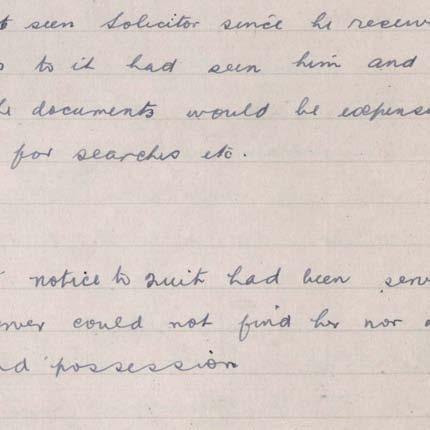 seen Solicitor since he
to it had seen him and
documents would be
for searches etc.
notice to quit had been
could not find her nor
possession